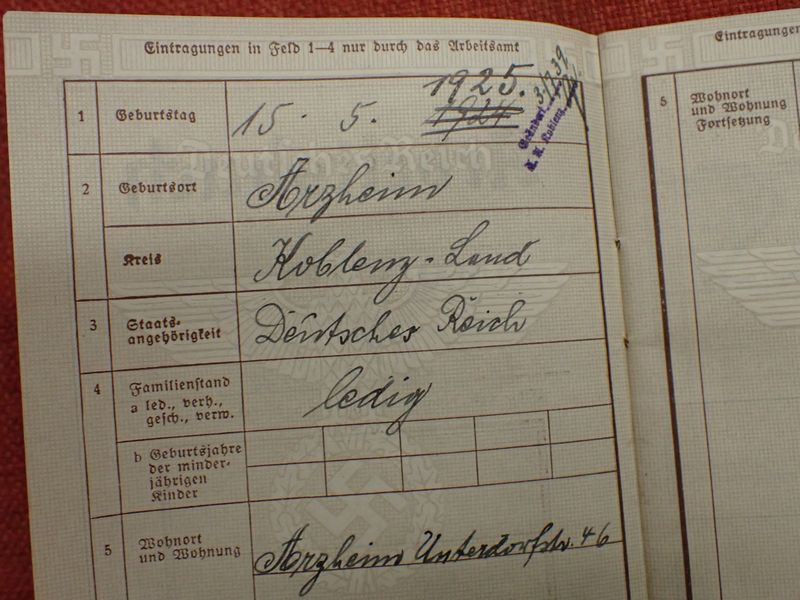 Eintragungen in Feld 1–4 nur durch das Arbeitsamt
1 Geburtstag 15. 5. 1925. 1924
Geändert 3/7.39
A. A. Koblenz
2 Geburtsort Arzheim
Kreis Koblenz-Land
3 Staats-
angehörigkeit Deutsches Reich
4 Familienstand
a led., verh.,
gesch., verw. ledig
b Geburtsjahre
der minder-
jährigen
Kinder
5 Wohnort
und Wohnung Arzheim Unterdorfstr. 46
Eintragungen
5 Wohnort
und Wohnung
Fortsetzung